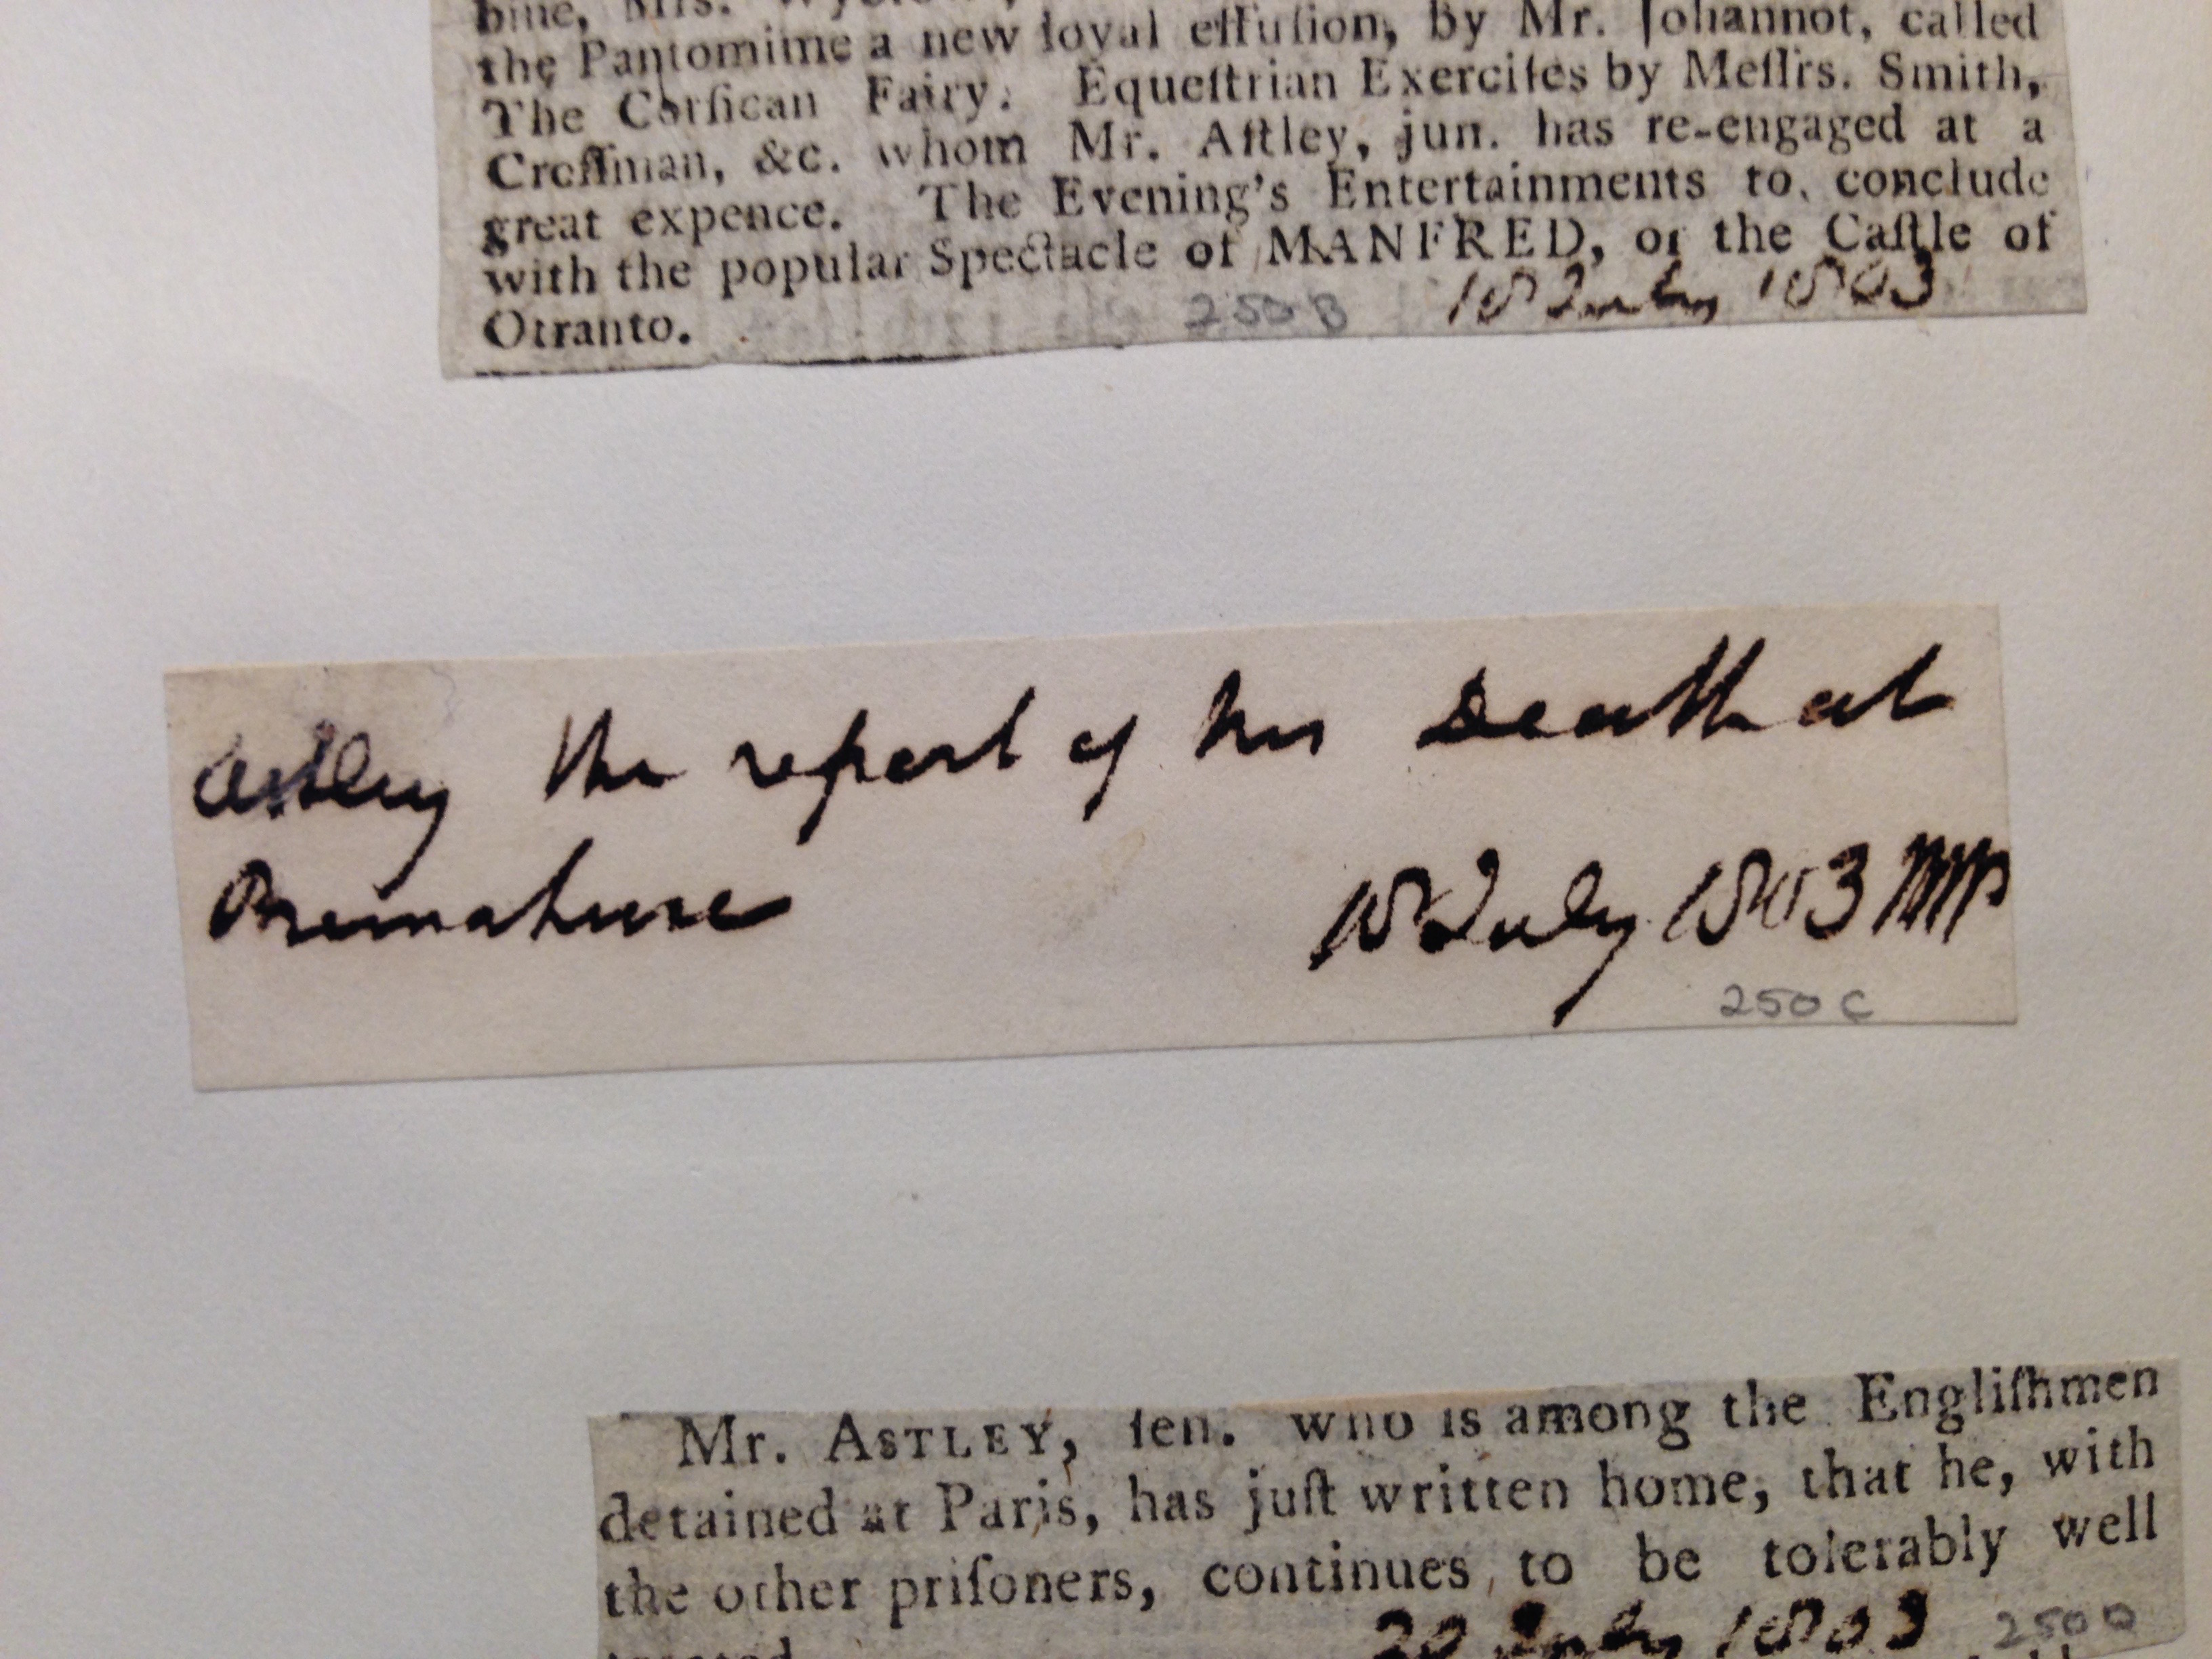 bine, Mrs.
the Pantomime a new loyal effuſion, by Mr. Johannot, called
The Corſican Fairy. Equeſtrian Exerciſes by Meſſrs. Smith,
Croſſman, &c. whom Mr. Aſtley, jun. has re-engaged at a
great expence. The Evening's Entertainments to conclude
with the popular Spectacle of MANFRED, or the Caſtle of
Otranto.
250 B 18 July 1803
Astley the report of his Death at
Premature 18 July 1803
250 C
Mr. ASTLEY, ſen. who is among the Engliſhmen
detained at Paris, has juſt written home, that he, with
the other priſoners, continues to be tolerably well
treated
July 1803 250 D